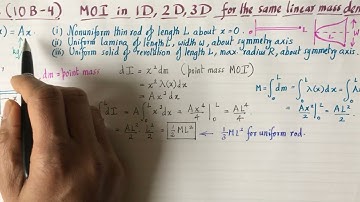 (10B-4) MOI in 1D, 2D, 3D for the same linear mass den
) = Ax. (i) Nonuniform thin rod of length L about x = 0.
(ii) Uniform lamina of length L, width w, about symmetry axis
(iii) Uniform solid of revolution of length L, max radius R, about symmetry axis.
dm = point mass dI = x² dm (point mass MOI)
= x² λ(x) dx
= A x³ dx
∫dI = A ∫₀ᴸ x³ dx = Ax⁴/4 |₀ᴸ = AL⁴/4
= AL²/2 · L²/2 = 1/2 ML² ← 1/3 ML² for uniform rod.
M = ∫₀ᴸ dm = ∫₀ᴸ λ(x) dx = ∫₀ᴸ Ax
= Ax²/2 |₀ᴸ = AL²/2